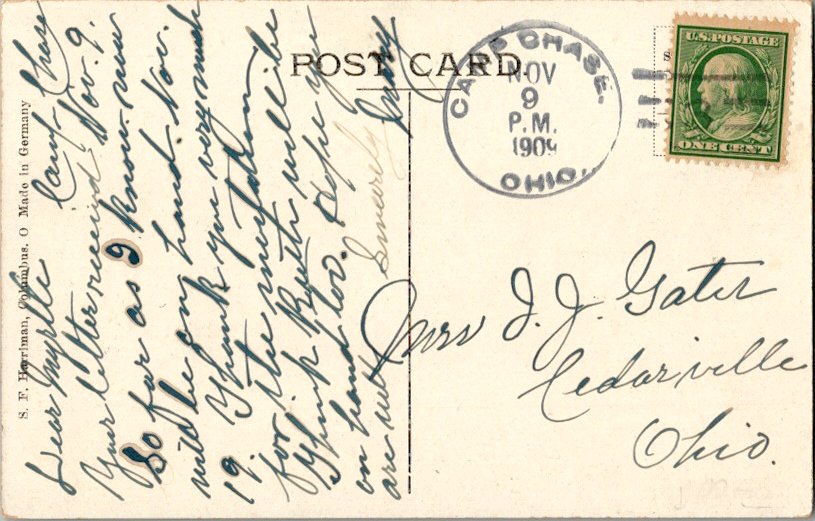 POST CARD.
CAMP CHASE.
NOV
9
P.M.
1909
OHIO.
U.S. POSTAGE
ONE CENT
S. F. Harriman, Columbus, O Made in Germany
Dear Myrtle Camp Chase
Your letter received Nov. 9.
So far as I know now
will be on hand Nov.
19. Thank you very much
for the invitation
Think Ruth will be
on hand too. Hope you
are well Sincerely
Mrs J. J. Gater
Cedarville
Ohio.